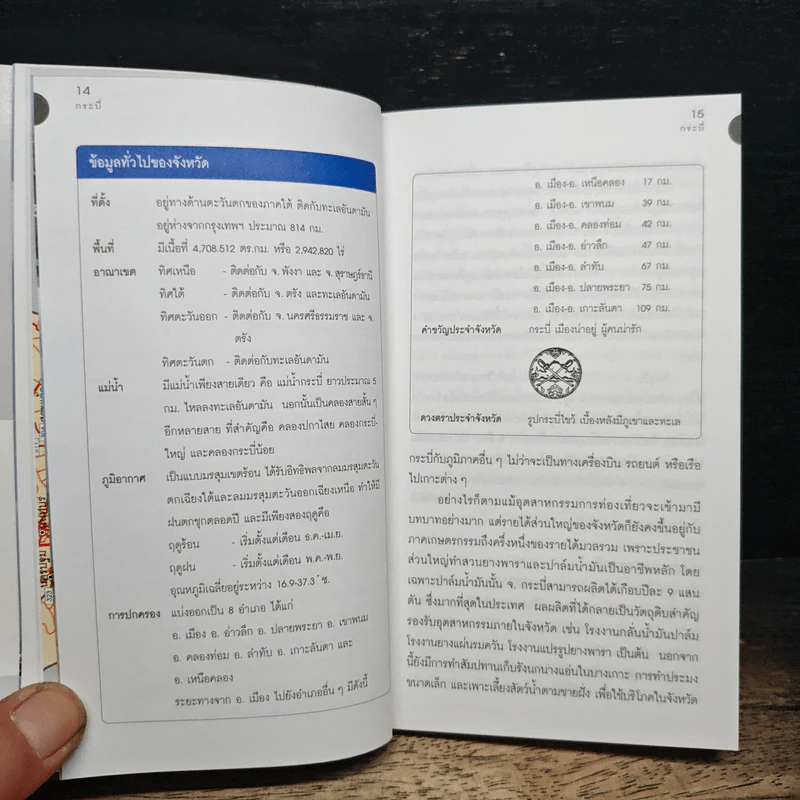 14
กระบี่
ข้อมูลทั่วไปของจังหวัด
ที่ตั้ง อยู่ทางด้านตะวันตกของภาคใต้ ติดกับทะเลอันดามัน
อยู่ห่างจากกรุงเทพฯ ประมาณ 814 กม.
พื้นที่ มีเนื้อที่ 4,708.512 ตร.กม. หรือ 2,942,820 ไร่
อาณาเขต ทิศเหนือ - ติดต่อกับ จ. พังงา และ จ. สุราษฎร์ธานี
ทิศใต้ - ติดต่อกับ จ. ตรัง และทะเลอันดามัน
ทิศตะวันออก - ติดต่อกับ จ. นครศรีธรรมราช และ จ.
ตรัง
ทิศตะวันตก - ติดต่อกับทะเลอันดามัน
แม่น้ำ มีแม่น้ำเพียงสายเดียว คือ แม่น้ำกระบี่ ยาวประมาณ 5
กม. ไหลลงทะเลอันดามัน นอกนั้นเป็นคลองสายสั้น ๆ
อีกหลายสาย ที่สำคัญคือ คลองปกาไสย คลองกระบี่-
ใหญ่ และคลองกระบี่น้อย
ภูมิอากาศ เป็นแบบมรสุมเขตร้อน ได้รับอิทธิพลจากลมมรสุมตะวัน
ตกเฉียงใต้และลมมรสุมตะวันออกเฉียงเหนือ ทำให้มี
ฝนตกชุกตลอดปี และมีเพียงสองฤดูคือ
ฤดูร้อน - เริ่มตั้งแต่เดือน ธ.ค.-เม.ย.
ฤดูฝน - เริ่มตั้งแต่เดือน พ.ค.-พ.ย.
อุณหภูมิเฉลี่ยอยู่ระหว่าง 16.9-37.3 ํซ.
การปกครอง แบ่งออกเป็น 8 อำเภอ ได้แก่
อ. เมือง อ. อ่าวลึก อ. ปลายพระยา อ. เขาพนม
อ. คลองท่อม อ. ลำทับ อ. เกาะลันตา และ
อ. เหนือคลอง
ระยะทางจาก อ. เมือง ไปยังอำเภออื่น ๆ มีดังนี้
15
กระบี่
อ. เมือง-อ. เหนือคลอง 17 กม.
อ. เมือง-อ. เขาพนม 39 กม.
อ. เมือง-อ. คลองท่อม 42 กม.
อ. เมือง-อ. อ่าวลึก 47 กม.
อ. เมือง-อ. ลำทับ 67 กม.
อ. เมือง-อ. ปลายพระยา 75 กม.
อ. เมือง-อ. เกาะลันตา 109 กม.
คำขวัญประจำจังหวัด กระบี่ เมืองน่าอยู่ ผู้คนน่ารัก
ดวงตราประจำจังหวัด รูปกระบี่ไขว้ เบื้องหลังมีภูเขาและทะเล
กระบี่กับภูมิภาคอื่น ๆ ไม่ว่าจะเป็นทางเครื่องบิน รถยนต์ หรือเรือ
ไปเกาะต่าง ๆ
อย่างไรก็ตามแม้อุตสาหกรรมการท่องเที่ยวจะเข้ามามี
บทบาทอย่างมาก แต่รายได้ส่วนใหญ่ของจังหวัดก็ยังคงขึ้นอยู่กับ
ภาคเกษตรกรรมถึงครึ่งหนึ่งของรายได้มวลรวม เพราะประชาชน
ส่วนใหญ่ทำสวนยางพาราและปาล์มน้ำมันเป็นอาชีพหลัก โดย
เฉพาะปาล์มน้ำมันนั้น จ. กระบี่สามารถผลิตได้เกือบปีละ 9 แสน
ตัน ซึ่งมากที่สุดในประเทศ ผลผลิตที่ได้กลายเป็นวัตถุดิบสำคัญ
รองรับอุตสาหกรรมภายในจังหวัด เช่น โรงงานกลั่นน้ำมันปาล์ม
โรงงานยางแผ่นรมควัน โรงงานแปรรูปยางพารา เป็นต้น นอกจาก
นี้ยังมีการทำสัมปทานเก็บรังนกนางแอ่นในบางเกาะ การทำประมง
ขนาดเล็ก และเพาะเลี้ยงสัตว์น้ำตามชายฝั่ง เพื่อใช้บริโภคในจังหวัด